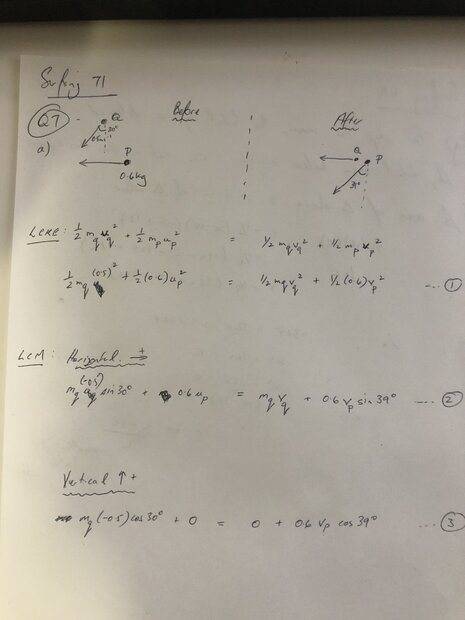 Surfing 71
Q7
Before
After
a)
Q
30°
0.5ms⁻¹
P
0.6kg
Q
P
39°
LCKE: ½ m_q u_q² + ½ m_p u_p² = ½ m_q v_q² + ½ m_p v_p²
½ m_q (0.5)² + ½ (0.6) u_p² = ½ m_q v_q² + ½ (0.6) v_p² ---- ①
LCM: Horizontal →+
m_q (-0.5) sin 30° + 0.6 u_p = m_q v_q + 0.6 v_p sin 39° ---- ②
Vertical ↑+
m_q (-0.5) cos 30° + 0 = 0 + 0.6 v_p cos 39° ---- ③